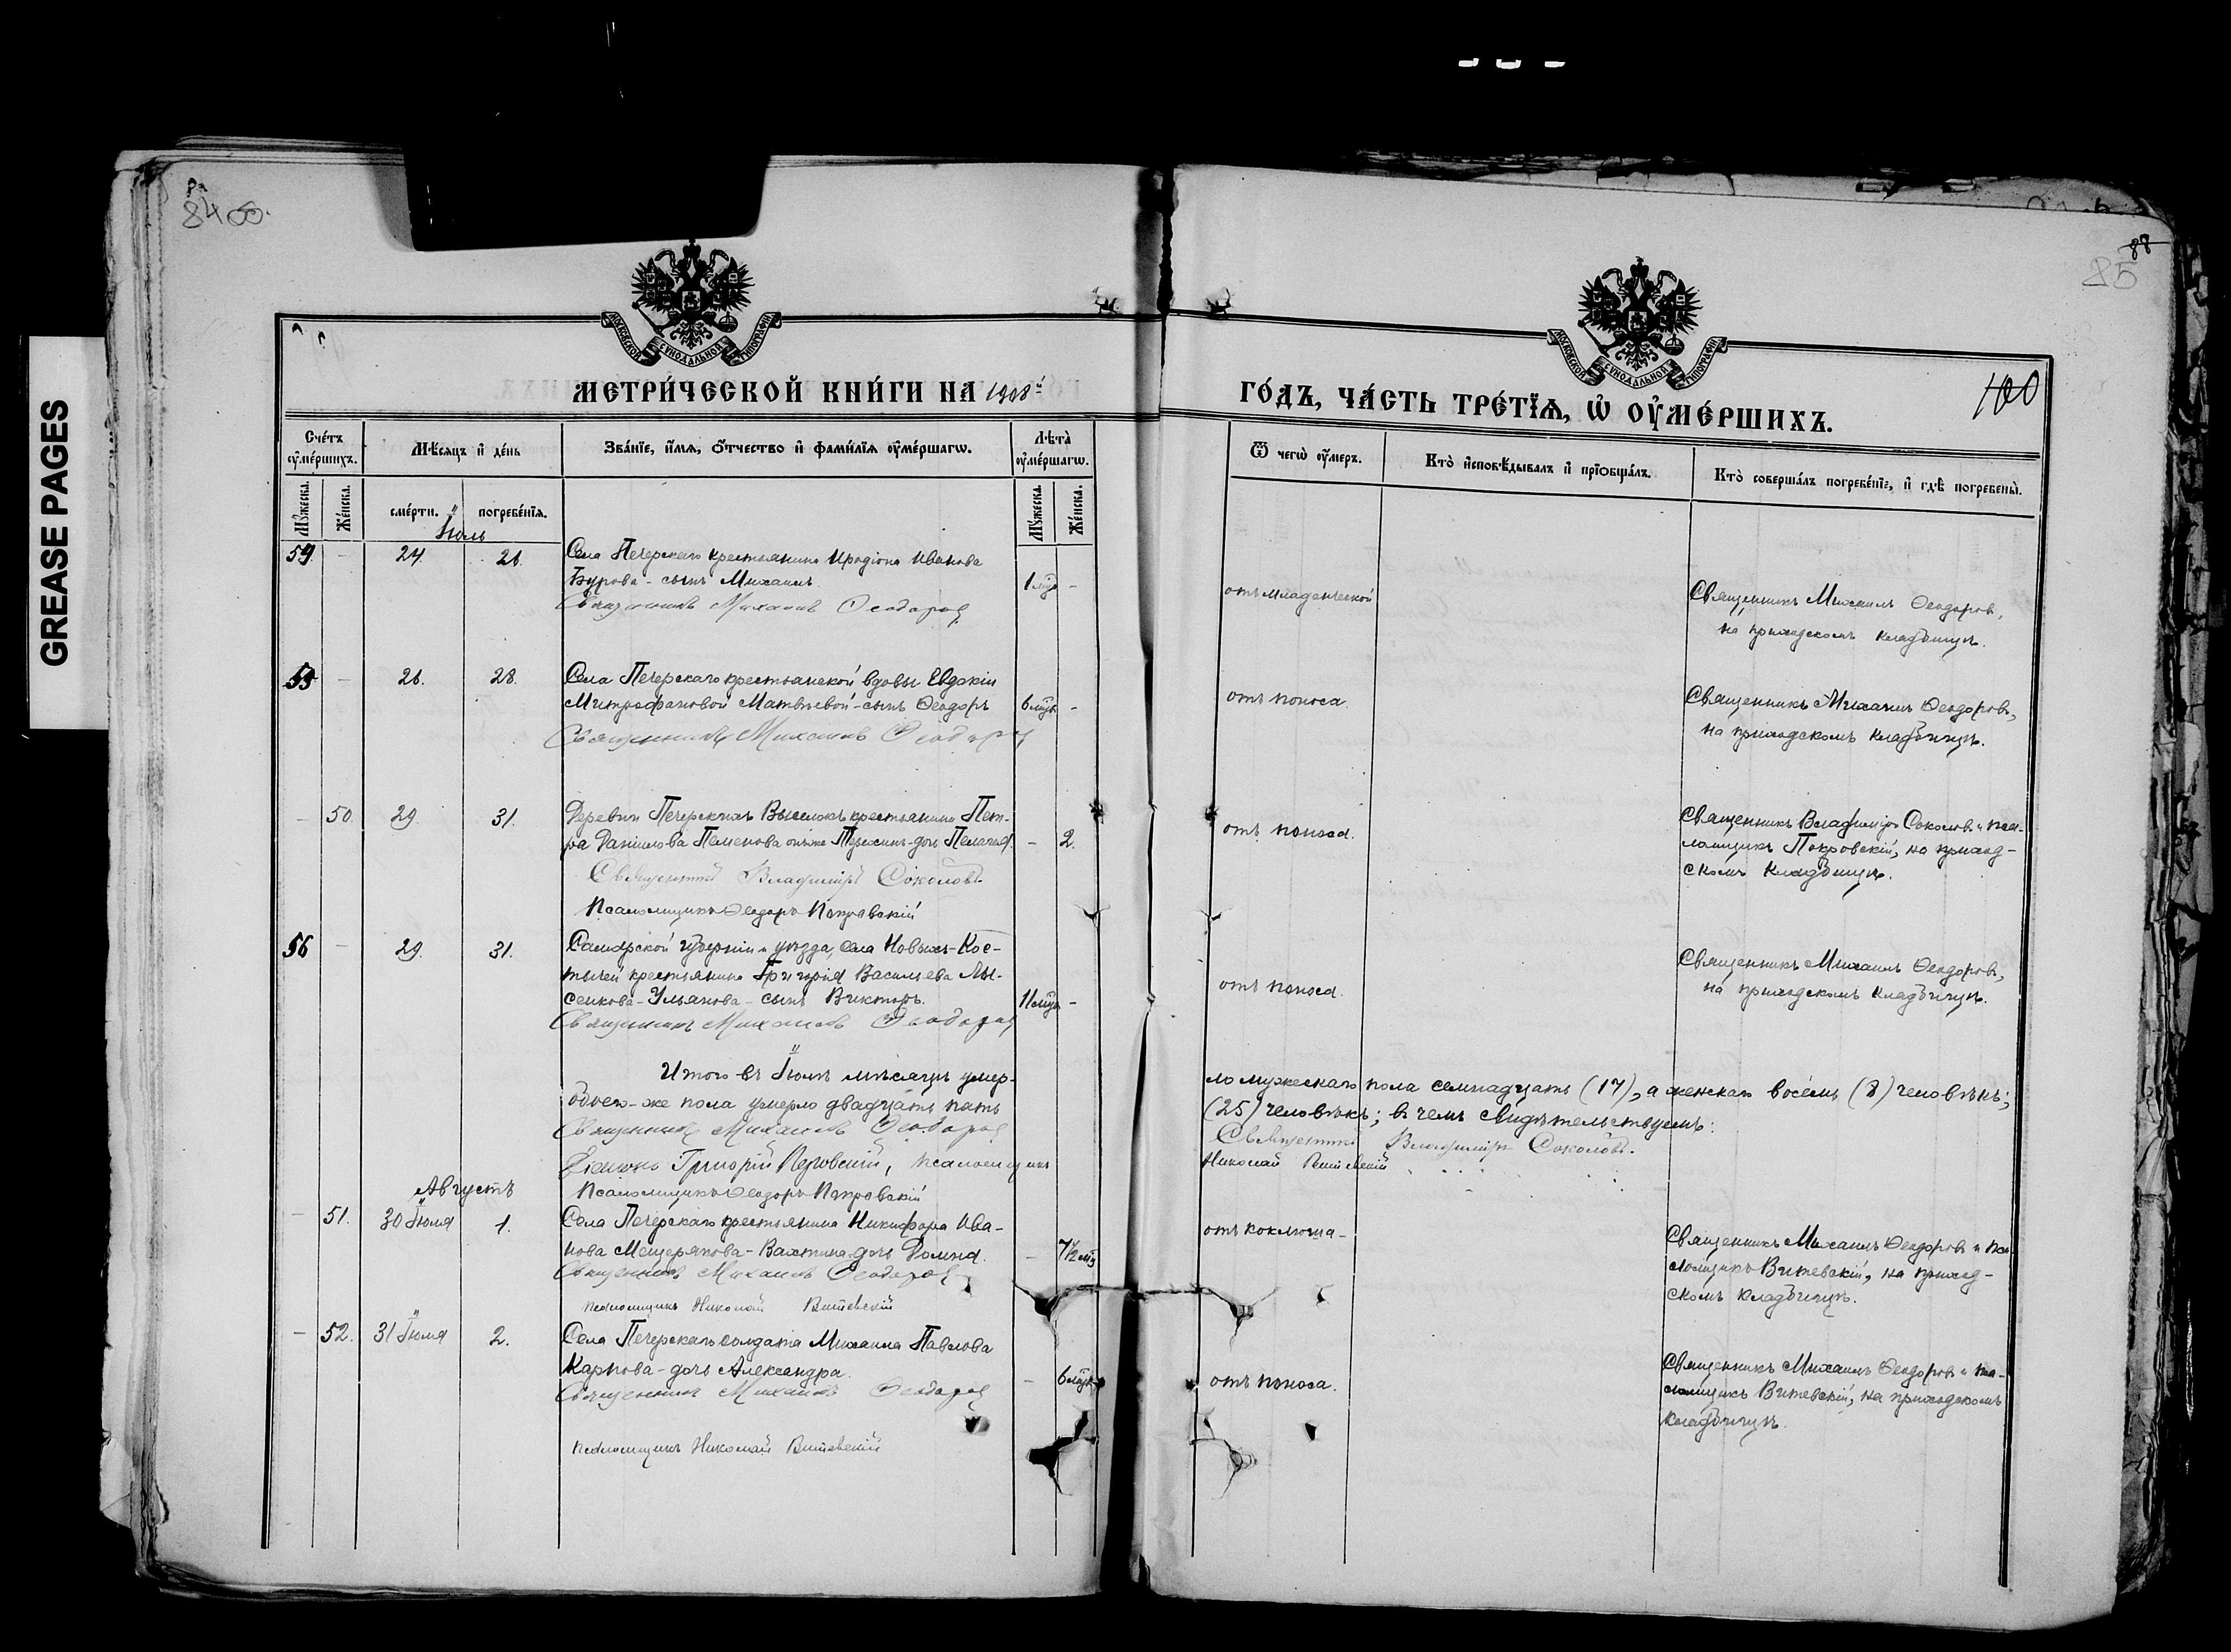 GREASE PAGES
84 об.
88
85
100
МОСКОВСКОЙ СѴНОДАЛЬНОЙ ТИПОГРАФІИ
МОСКОВСКОЙ СѴНОДАЛЬНОЙ ТИПОГРАФІИ
МЕТРИ́ЧЕСКОЙ КНИ́ГИ НА 1908й
ГО́ДЪ, ЧА́СТЬ ТРЕ́ТЇѦ, Ѡ҆ ОУ҆МЕ́РШИХЪ.
Сче́тъ оу҆ме́ршихъ.
Мѣ́сяцъ и҆ де́нь
Зва́нїе, и҆́мѧ, о҆́тчество и҆ фами́лїѧ оу҆ме́ршагѡ.
Лѣ́та оу҆ме́ршагѡ.
Ѿ чегѡ̀ оу҆́меръ.
Кто̀ и҆сповѣ́дывалъ и҆ прїѡбща́лъ.
Кто̀ соверша́лъ погребе́нїе, и҆ гдѣ̀ погребены̀.
Мꙋ́жеска.
Же́нска.
сме́рти.
погребе́нїѧ.
Мꙋ́жеска.
Же́нска.
Іюль
54 - 24. 26. Села Печерскаго крестьянина Иродіона Иванова
Бурова - сынъ Михаилъ. 1 мѣс. -
Священникъ Михаилъ Ѳеодоровъ
отъ младенческой
Священникъ Михаилъ Ѳеодоровъ,
на приходскомъ кладбищѣ.
55 - 26. 28. Села Печерскаго крестьянской вдовы Евдокіи
Митрофановой Матвѣевой - сынъ Ѳеодоръ 6 мѣс. -
Священникъ Михаилъ Ѳеодоровъ
отъ поноса.
Священникъ Михаилъ Ѳеодоровъ,
на приходскомъ кладбищѣ.
- 50. 29. 31. Деревни Печерскихъ Выселокъ крестьянина Пет-
ра Данилова Пеменова онъже дочь Пелагія. - 2.
Священникъ Владиміръ Соколовъ.
Псаломщикъ Ѳеодоръ Покровскій
отъ поноса.
Священникъ Владиміръ Соколовъ и пса-
ломщикъ Покровскій, на приход-
скомъ кладбищѣ.
56 - 29. 31. Самарской губерніи и уѣзда, села Новыхъ-Кос-
тычей крестьянина Григорія Васильева Лы-
сенкова-Ульянова - сынъ Викторъ. 11 мѣс. -
Священникъ Михаилъ Ѳеодоровъ
отъ поноса.
Священникъ Михаилъ Ѳеодоровъ,
на приходскомъ кладбищѣ.
Итого въ Іюлѣ мѣсяцѣ умер-
ло мужескаго пола семнадцать (17), а женскаго восемь (8) человѣкъ;
обоего-же пола умерло двадцать пять
(25) человѣкъ; въ чемъ свидѣтельствуемъ:
Священникъ Михаилъ Ѳеодоровъ
Священникъ Владиміръ Соколовъ.
Діаконъ Григорій псаломщикъ
Николай Витевскій
Псаломщикъ Ѳеодоръ Покровскій
Августъ
- 51. 30 Іюля 1. Села Печерскаго крестьянина Никифора Ива-
нова Мещерякова-Вахтина дочь Домна. - 7½ мѣс
Священникъ Михаилъ Ѳеодоровъ
псаломщикъ Николай Витевскій
отъ коклюша -
Священникъ Михаилъ Ѳеодоровъ и пса-
ломщикъ Витевскій, на приход-
скомъ кладбищѣ.
- 52. 31 Іюля 2. Села Печерскаго солдата Михаила Павлова
Карпова - дочь Александра. - 6 мѣс.
Священникъ Михаилъ Ѳеодоровъ
псаломщикъ Николай Витевскій
отъ поноса.
Священникъ Михаилъ Ѳеодоровъ и пса-
ломщикъ Витевскій, на приходскомъ
кладбищѣ.